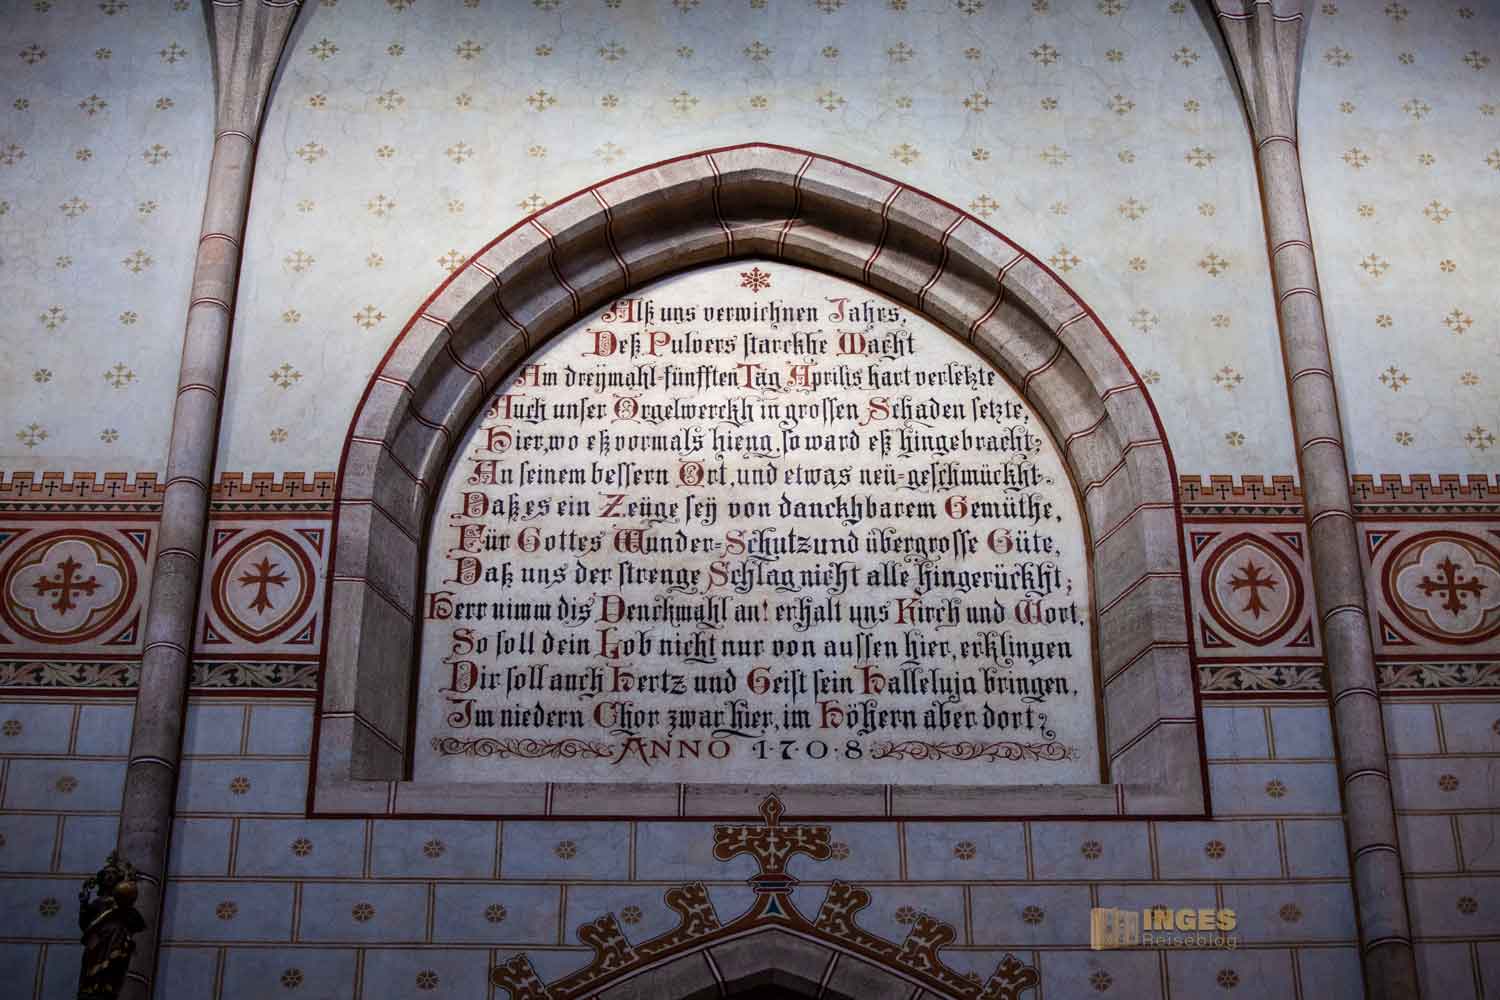 Alß uns verwichnen Jahrs,
Deß Pulvers starckhe Macht
Am dreÿmahl-fünfften Tag Aprilis hart verletzte
Auch unser Orgelwerckh in grossen Schaden setzte,
Hier, wo eß vormals hieng, so ward eß hingebracht,
An seinem bessern Ort, und etwas neü-geschmückht.
Daß es ein Zeüge seÿ von danckhbarem Gemüthe,
Für Gottes Wunder-Schutz und übergrosse Güte,
Daß uns der strenge Schlag nicht alle hingerückht;
Herr nimm dis Denckmahl an! erhalt uns Kirch und Wort,
So soll dein Lob nicht nur von aussen hier, erklingen
Dir soll auch Hertz und Geist sein Halleluja bringen,
Im niedern Chor zwar hier, im Höhern aber dort.
ANNO 1·7·0·8·
INGES
Reiseblog